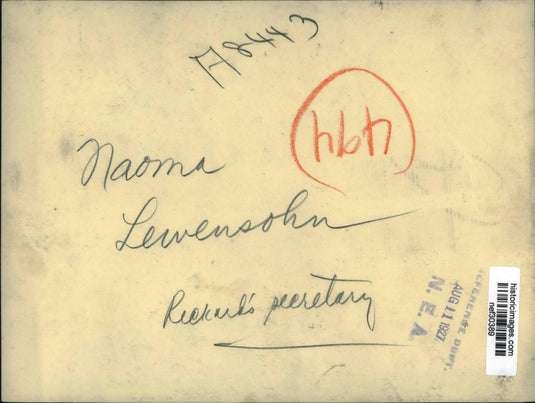 A8443
4944
Naoma
Lewensohn
Rickard's secretary
REFERENCE DEPT.
AUG 11 1927
N. E. A.
historicimages.com
nef30389